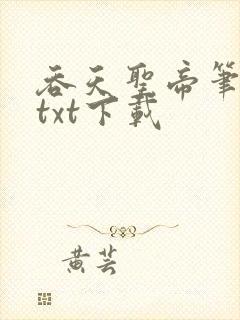 吞天聖帝筆
txt下載
黃芸